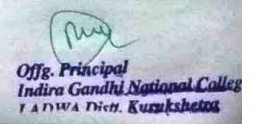 Offg. Principal
Indira Gandhi National Colleg
LADWA Distt. Kurukshetra